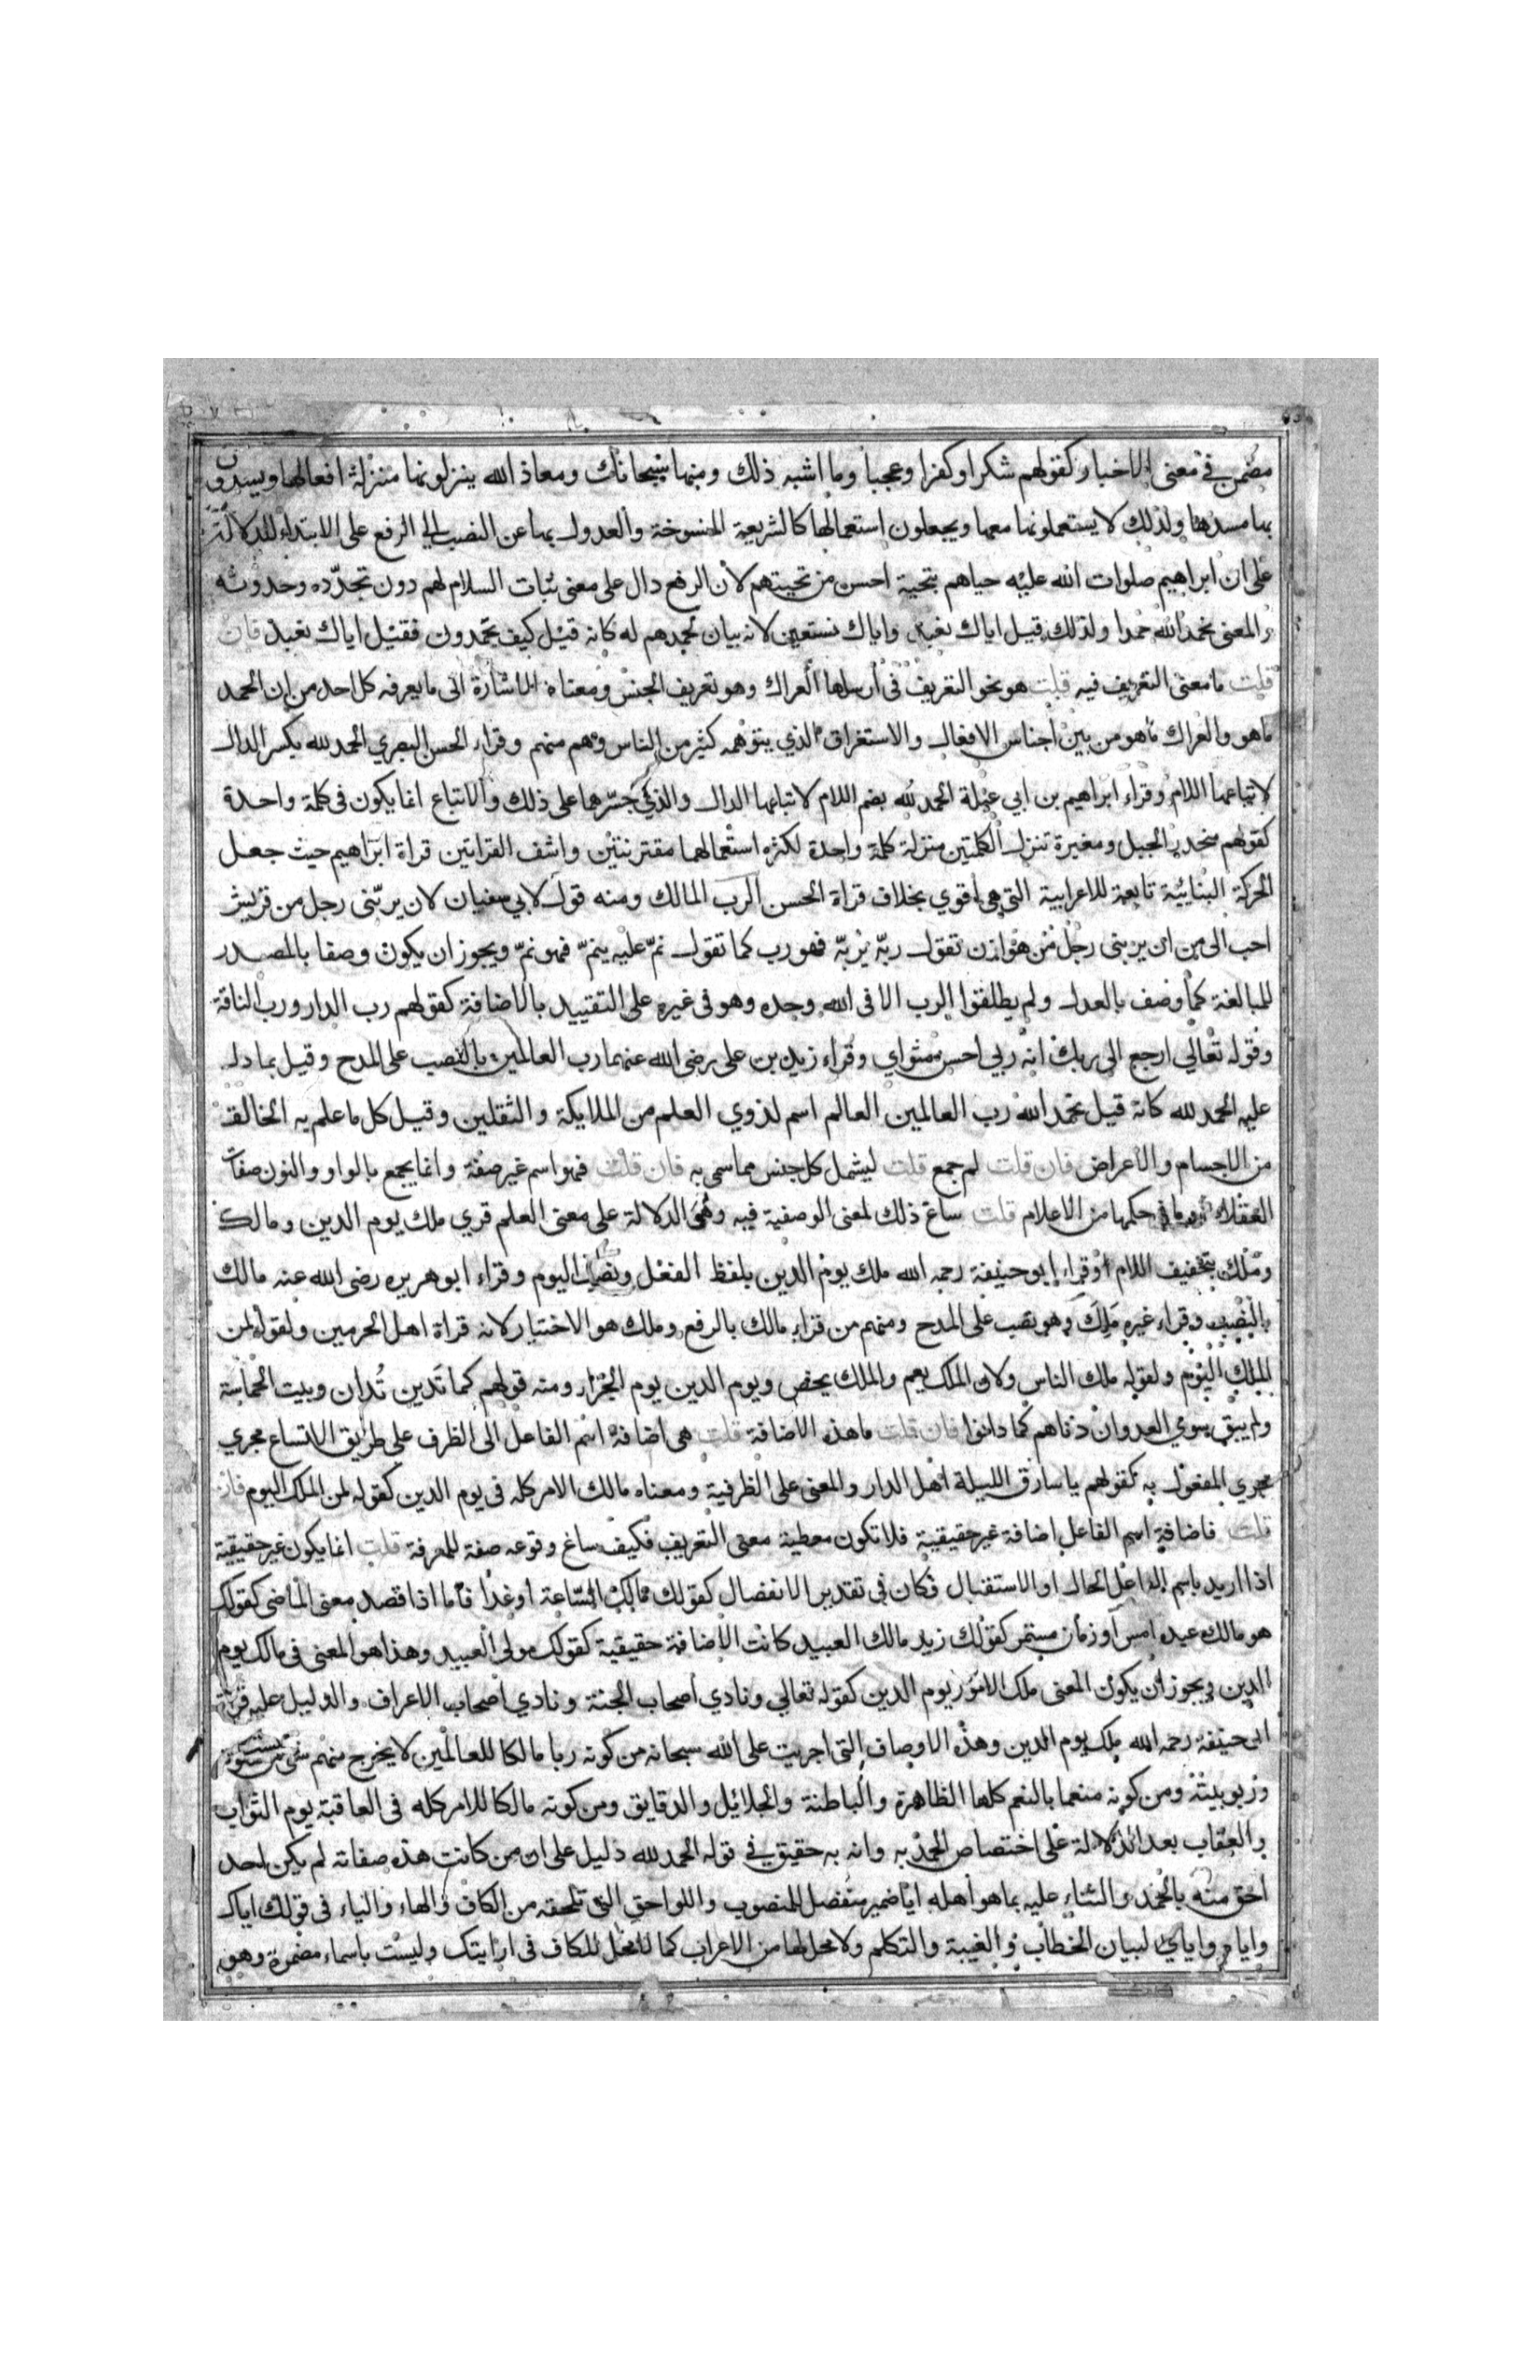 مضمر في معنى الاخبار كقولهم شكرا وكفرا وعجبا وما اشبه ذلك ومنها سبحانك ومعاذ الله ينزلونها منزلة افعالها ويسدون
بها مسدها ولذلك لا يستعملونها معها ويجعلون استعمالها كالشريعة المنسوخة والعدول بها عن النصب الى الرفع على الابتداء للدلالة
على ان ابراهيم صلوات الله عليه حياهم بتحية احسن من تحيتهم لان الرفع دال على معنى ثبات السلام لهم دون تجدّده وحدوثه
والمعنى نحمد الله حمدا ولذلك قيل اياك نعبد واياك نستعين لانه بيان لحمدهم له كانه قيل كيف تحمدون فقيل اياك نعبد فان
قلت ما معنى التعريف فيه قلت هو نحو التعريف في أرسلها العراك وهو تعريف الجنس ومعناه الاشارة الى ما يعرفه كل احد من ان الحمد
ما هو والعراك ما هو من بين أجناس الافعال والاستغراق الذي يتوهمه كثير من الناس وهم منهم وقراء الحسن البصري الحمد لله بكسر الدال
لاتباعها اللام وقراء ابراهيم بن ابي عبلة الحمد لله بضم اللام لاتباعها الدال والذي جسّرهما على ذلك والاتباع انما يكون في كلمة واحدة
كقولهم منحدر الجبل ومغيرة تنزل الكلمتين منزلة كلمة واحدة لكثرة استعمالهما مقترنتين واشف القراتين قراة ابراهيم حيث جعل
الحركة البنائية تابعة للاعرابية التي هي أقوي بخلاف قراة الحسن الرب المالك ومنه قول لابي سفيان لان يربّني رجل من قريش
احب الى من ان يربني رجل من هوازن تقول ربّه يربّه فهو رب كما تقول نمّ عليه ينمّ فهو نمّ ويجوز ان يكون وصفا بالمصدر
للمبالغة كما وصف بالعدل ولم يطلقوا الرب الا في الله وحده وهو في غيره على التقييد بالاضافة كقولهم رب الدار ورب الناقة
وقوله تعالي ارجع الى ربك انه ربي احسن مثواي وقراء زيد بن على رضى الله عنهما رب العالمين بالنصب على المدح وقيل بما دل
عليه الحمد لله كانه قيل نحمد الله رب العالمين العالم اسم لذوي العلم من الملايكة والثقلين وقيل كل ما علم به الخالق
من الاجسام والاعراض فان قلت لم جمع قلت ليشمل كل جنس مما سمي به فان قلت فهو اسم غير صفة وانما يجمع بالواو والنون صفات
العقلاء او ما في حكمها من الاعلام قلت ساغ ذلك لمعنى الوصفية فيه وهي الدلالة على معنى العلم قري ملك يوم الدين ومالك
وملك بتخفيف اللام وقراء ابو حنيفة رحمه الله ملك يوم الدين بلفظ الفعل ونصب اليوم وقراء ابو هريره رضى الله عنه مالك
بالنصب وقراء غيره مَلِكَ وهو نصب على المدح ومنهم من قراء مالك بالرفع وملك هو الاختيار لانه قراة اهل الحرمين ولقوله لمن
الملك اليوم ولقوله ملك الناس ولان الملك يعم والملك يخص ويوم الدين يوم الجزاء ومنه قولهم كما تَدين تُدان وبيت الحماسة
ولم يبق سوي العدوان دناهم كما دانوا فان قلت ما هذه الاضافة قلت هى اضافة اسم الفاعل الى الظرف على طريق الاتساع مجري
مجري المفعول به كقولهم يا سارق الليلة اهل الدار والمعنى على الظرفية ومعناه مالك الامر كله في يوم الدين كقوله لمن الملك اليوم فان
قلت فاضافة اسم الفاعل اضافة غير حقيقية فلا تكون معطية معنى التعريف فكيف ساغ وقوعه صفة للمعرفة قلت انما يكون غير حقيقية
اذا اريد باسم الفاعل الحال او الاستقبال فكان في تقدير الانفصال كقولك مالك الساعة أو غدا فأما اذا قصد معنى الماضي كقولك
هو مالك عبده امس أو زمان مستمر كقولك زيد مالك العبيد كانت الاضافة حقيقية كقولك مولى العبيد وهذا هو المعنى في مالك يوم
الدين ويجوز أن يكون المعنى ملك الامور يوم الدين كقوله تعالي ونادي أصحاب الجنة ونادي أصحاب الاعراف والدليل عليه قراة
ابى حنيفة رحمه الله ملك يوم الدين وهذه الاوصاف التي اجريت على الله سبحانه من كونه ربا مالكا للعالمين لا يخرج منهم شئ من ملكوته
وربوبيته ومن كونه منعما بالنعم كلها الظاهرة والباطنة والجلائل والدقايق ومن كونه مالكا للامر كله في العاقبة يوم الثواب
والعقاب بعد الدلالة على اختصاص الحمد به وانه به حقيق في قوله الحمد لله دليل على ان من كانت هذه صفاته لم يكن احد
احق منه بالحمد والثناء عليه بما هو أهله ايّا ضمير منفصل للمنصوب واللواحق التي تلحقه من الكاف والهاء والياء في قولك اياك
واياه واياي لبيان الخطاب والغيبة والتكلم ولا محل لها من الاعراب كما لا محل للكاف في ارايتك وليست باسماء مضمرة وهو